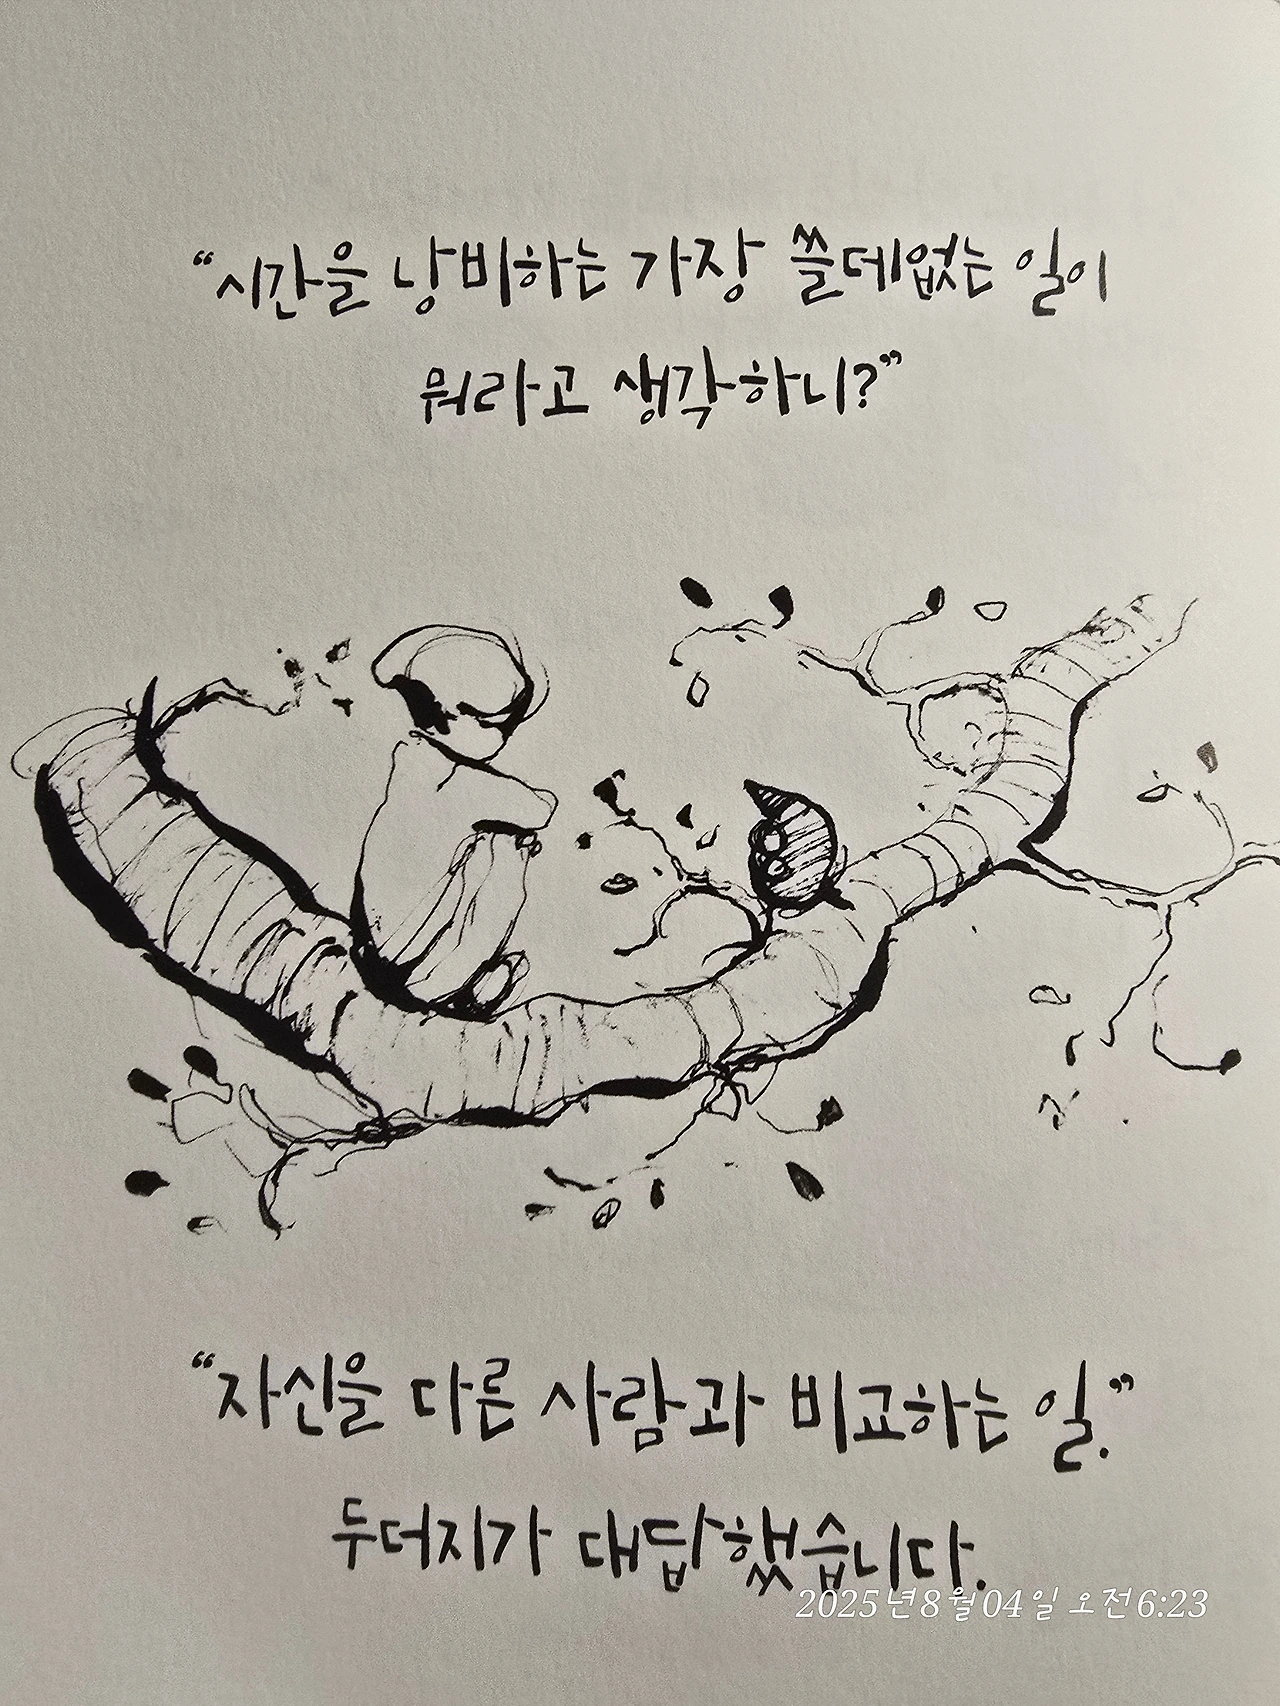 “시간을 낭비하는 가장 쓸데없는 일이
뭐라고 생각하니?”
“자신을 다른 사람과 비교하는 일.”
두더지가 대답했습니다.
2025년8월04일 오전6:23